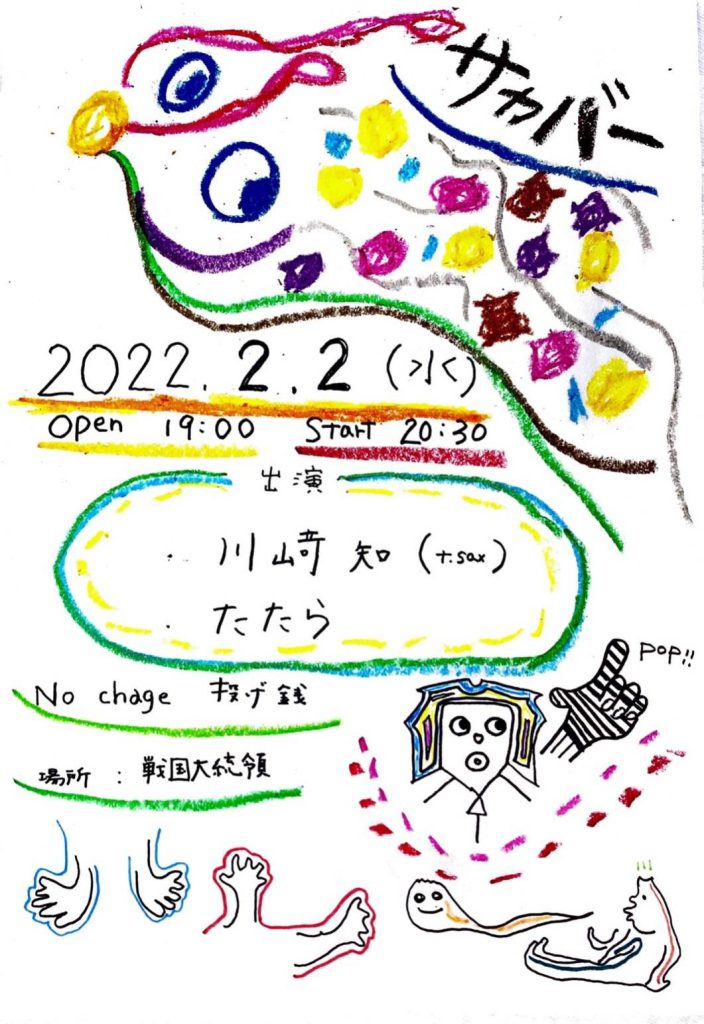 サカバー
2022.2.2 (水)
Open 19:00 Start 20:30
出演
・川﨑 知 (t.sax)
・たたら
No chage 投げ銭
場所 : 戦国大統領
pop!!